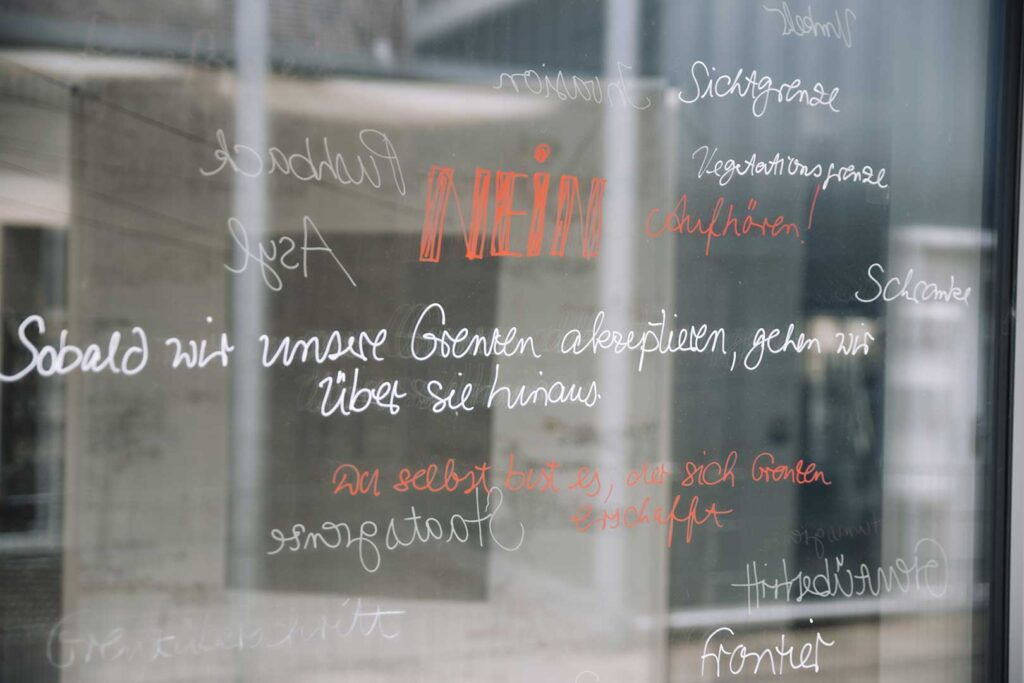 Umwelt
Invasion
Sichtgrenze
Pushback
NEiN
Vegetationsgrenze
Aufhören!
Asyl
Schranke
Sobald wir unsere Grenzen akzeptieren, gehen wir
über sie hinaus.
Du selbst bist es, der sich Grenzen
erschafft
Staatsgrenze
Grenzübertritt
Grenzüberschritt
frontier